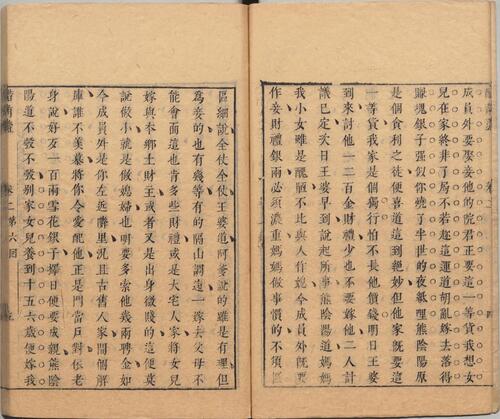 成員外要娶他的院君正要這一等貨我想女
兒在家終非了局不若趂運道胡亂嫁去落得
賺塊銀子强似你燒了半世的夜紙哩熊陰陽原
是個貪利之徒便喜道這到絶妙但他家旣要這
一等貨我家是個獨行怕不長他價錢明日王婆
到來討他一二百金財禮少也不要嫁他二人計
議已定次日王婆早到說起所事熊陰陽道媽媽
我小女雖是醜陋不比與人作媳今成員外旣要
作妾財禮銀兩必須濃重媽媽做事慣的不須區
區細說全仗全仗王婆道阿爹說的雖是有理但
為妾的也有幾等有的隔山謂這一嫁去父母不
能會面這也肯多些財禮或是大宅人家將女兒
嫁與本鄉土財主或者又是出身微賤的這便莫
說做小就是做媳婦也明要多索他幾兩聘金如
今成員外是你左近隣里況且古舊人家開個解
庫誰不羨慕將你令愛配他正是門當戶對依老
身說好歹一百兩雪花銀子擇日便要成親熊陰
陽道不彀不彀別家女兒養到十五六歲便嫁我
卷二第六回 五